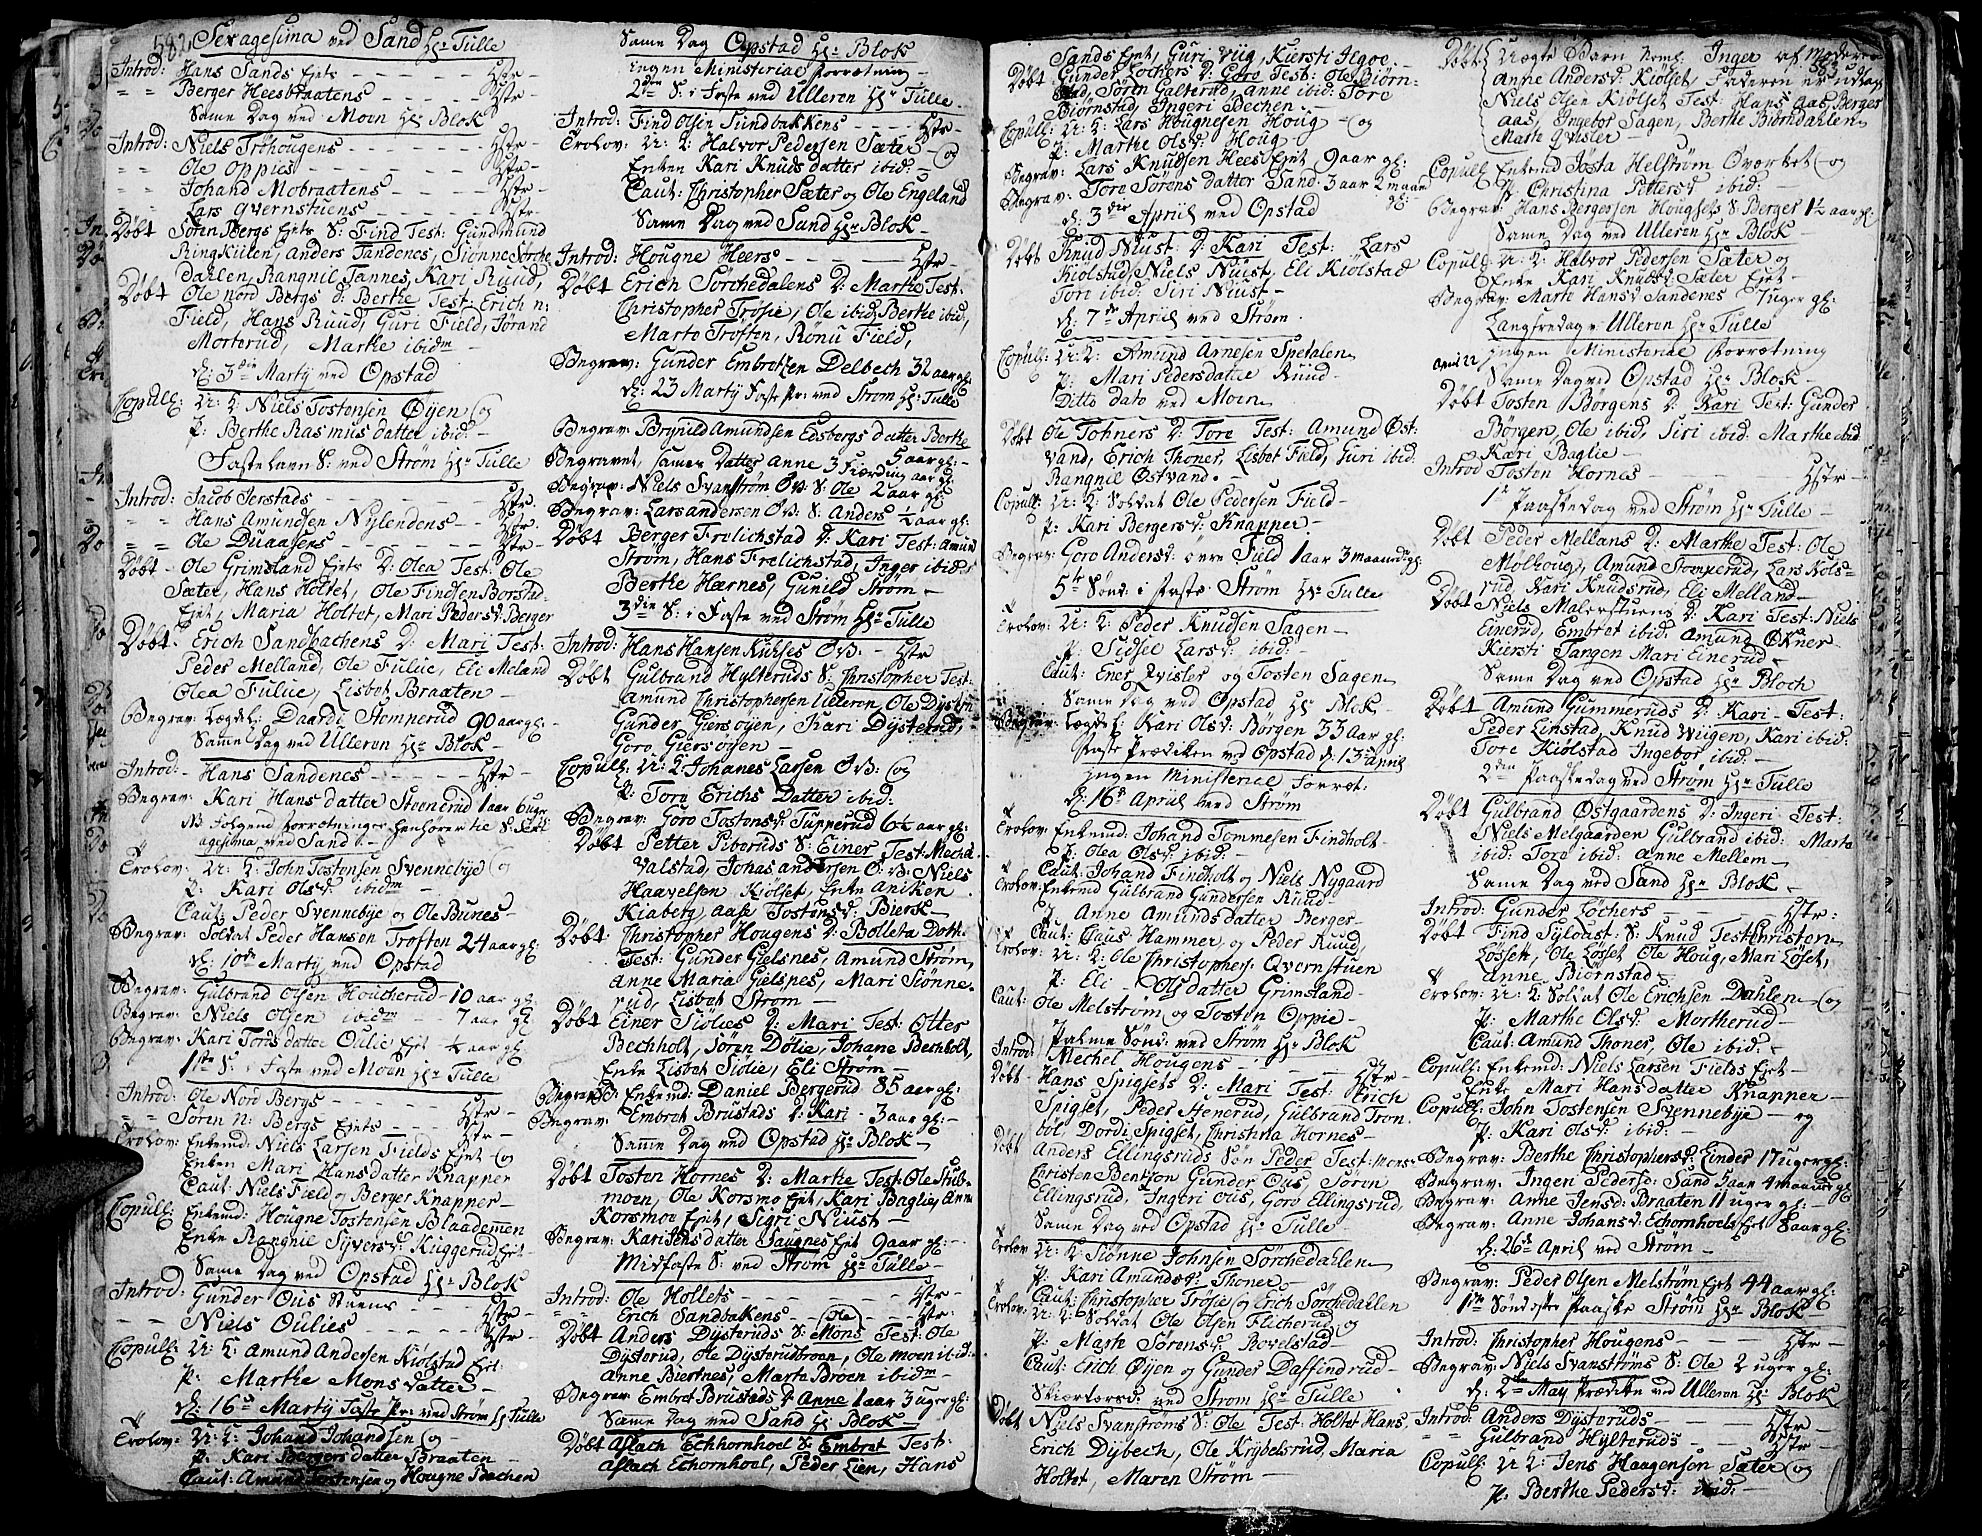 582
Sexagesima ved Sand Hr Tulle
Introd: Hans Sands Ejets - - - Hstr -
" " Berger Heesbraatens - - - Hstr -
Same Dag ved Moen Hr Blok
Introd: Niels Trøhougens - - - Hstr -
" " Ole Oppies - - - Hstr -
" " Johand Mobraatens - - - Hstr -
" " Lars Qvernstuens - - - Hstr -
Døbt Søren Bergs Ejets S: Find Test: Gundmund
Ringkiilen, Anders Tandenes, Siønne Sørche
Dahlen, Rangnil Tannes, Kari Ruud,
Døbt Ole nord Bergs d: Berthe Test: Erich n:
Field, Hans Ruud, Guri Field, Jørand
Morterud, Marthe ibidm
d: 3die Marty ved Opstad
Copull: U: K: Niels Tostensen Øyen og
P: Berthe Rasmusdatter ibid: -
Fastelavn S: ved Strøm Hr Tulle
Introd: Jacob Jerstads - - - Hstr -
" " Hans Amundsen Nylendens - - Hstr -
" " Ole Duaasens - - - Hstr -
Døbt - Ole Grimsland Ejets D: Olea Test: Ole
Sæter, Hans Holtet, Ole Findsen Borstad-
Ejet, Maria Holtet, Mari Pedersd: Berger
Døbt: Erich Sandbachens D: Mari Test:
Peder Melland, Ole Fulue, Eli Meland
Olea Fulue, Lisbet Braaten -
Begrav: Lægdel: Daardi Stomperud 90 aar gl: -
Same Dag ved Ulleren Hr Blok -
Introd: - Hans Sandenes - - - Hstr -
Begrav: Kari Hansdatter Steenerud 1 aar 6 uger
NB Følgend forretninger henhører til S: Sexa
agesima ved Sand -
Trolov: U: K: John Tostensen Svennebye og
P: Kari Olsd: ibidm -
Caut: Peder Svennebye og Ole Bures -
Begrav: Soldat Peder Hansen Troften 24 aar gl:
d: 10de Marty ved Opstad
Begrav: Gulbrand Olsen Houcherud - 10 aar gl:
Begrav: Niels Olsen ibidm - 7 aar gl
Begrav: Kari Torisdatter Oulie Ejet ¼ aar gl
1ste S: i Faste ved Moen Hr Tulle
Introd: Ole Nord Bergs - - - Hstr -
" " Søren n: Bergs Ejets - - - Hstr -
Trolov: Enkemd: Niels Larsen Fields Ejet og
Enken Mari Hansdatter Knapper
Caut: Niels Field og Berger Knapper -
Copull: Enkemd: Hougne Tostensen Blaademen
Enke Rangnie Syversd: Kuggerud Ejet -
Same Dag ved Opstad Hr Blok
Introd: Gunder Ous - - - Hstr -
" " Niels Oulies - - - Hstr -
Copull: U: K: Amund Andersen Kiølstad Ejet
P: Marthe Monsdatter -
d: 16de Marty Faste Pr: ved Strøm Hr Tulle
Trolov: U: K: Johand Johandsen og -
P: Kari Bergersdatter Braaten -
Caut: Amund Tostensen og Hougne Bechen
Same Dag Opstad Hr Blok
Ingen Ministeriae forretning -
2den S: i Faste ved Ulleren Hr Tulle -
Introd: Find Olsen Sundbakkens - - Hstr -
Trolov: U: K: Halvor Pedersen Sæter - og
Enken Kari Knudsdatter ibid: -
Caut: Christopher Sæter og Ole Engeland
Same Dag ved Sand Hr Blok -
Introd: Hougne Heers - - - Hstr -
Døbt Erich Sørchedalens D: Marthe Test:
Christopher Trøsie, Ole ibid, Berthe ibid,
Marto Troften, Rønu Field,
Begrav: Gunder Embretzen Delbech 32 aar gl
d: 23 Marty Faste Pr: ved Strøm Hr Tulle
Begrav: Brynild Amundsen Edsbergs datter Berthe
5 aar gl: -
Begravet, samen Datter Anne 3 Fiærding aar gl
Begrav: Niels Svanstrøm Ov: S: Ole 2 aar gl:
Begrav: Lars andersen Ov: S: Anders ¼ aar gl:
Døbt Berger Frølichstad D: Kari Test: Amund
Strøm, Hans Frølichstad, Inger ibid:
Berthe Hærnes, Gunild Strøm -
3die S: i Faste ved Strøm Hr Tulle
Introd: Hans Hansen Kuhses Ov: - Hstr
Døbt Gulbrand Hylteruds S: Christopher Test:
Amund Christophersen Ulleren, Ole Dysterud
Gunder Giersøyen, Kari Dysterud,
Goro Giersøyen -
Copull: U: K: Johanes Larsen Ov: og
P: Tore Erichs Datter ibid:
Begrav: Goro Tostensd: Tupperud 6½ aar gl:
Døbt Petter Piberuds S: Einer Test: Mechel
Valstad, Johas andersen Ov: Niels
Haavelsen Kiølset, Enke Aniken
Kiaberg, aase Tostensd: Bierck -
Døbt Christopher Hougens D: Bolleta Doth:
Test: Gunder Gielsnes, Amund Strøm,
Anne Maria Gielsnes, Mari Siønne-
rud, Lisbet Strøm -
Døbt Einer Siølies D: Mari Test: Otter
Bechholt, Søren Dølie, Johane Bechholt,
Enke Lisbet Siølie, Eli Strøm -
Begravd: Enkemd: Daniel Bergerud 85 aar gl:
Begrav: Embret Brustads D: Kari - 3 aar gl: -
Same Dag ved Opstad Hr Blok -
Døbt Tosten Hornes D: Marthe Test: Ole Stub-
moen, Ole Korsmo Ejet, Kari Baglie, Anne
Korsmoe Ejet, Sigri Niust -
Begrav: Kari Jensdatter Saugnes Ejet 9 aar gl: -
Midfaste S: ved Strøm Hr Tulle -
Introd: Ole Hollets - - - Hstr -
Erich Sandbakens - - Hstr -
Døbt Anders Dysteruds S: Mons Test: Ole
Dysterud, Ole Dysterudbroen, Ole moen ibid:
Anne Biertnes, Marte Broen ibidm -
Begrav: Embret Brustads d: Anne 1 aar 3 uger gl:
Same Dag ved Sand Hr Blok -
Døbt Aslach Echhornhoel S: Embret Test:
Aslach Echornhoel, Peder Lien, Hans
Sands Ejet, Guri Viig, Kiersti Ilgoe. -
Døbt Gunder Løchers D: Goro Test: Ole Biørn-
stad, Søren Galterud, Anne ibid: Tore
Biørnstad, Ingeri Bechen. -
Copull: U: K: Lars Hougnesen Houg - og
P: Marthe Olsd: Houg -
Begrav: Lars Knudsen Hees Ejet 9 aar gl:
Begrav: Tore Sørens datter Sand: 3 aar 2 maand
gl: -
d: 3die Apriil ved Opstad
Døbt Knud Niust D: Kari Test: Lars
Kiølstad, Niels Niust, Eli Kiølstad
Tori ibid: Siri Niust -
d: 7de Apriil ved Strøm
Copull: U: K: Amund Arnesen Spetalen
P: Mari Pedersdatter Ruud -
Ditto dato ved Moen -
Døbt Ole Tohners D: Tore Test: Amund Øst:
vand, Erich Thoner, Lisbet Field, Guri ibid.
Rangnil Østvand. -
Copull: U: K: Soldat Ole Pedersen Field -
P: Kari Bergersd: Knapper -
Begrav: Goro Andersd: øvre Field 1 aar 3 maaneder gl:
5te Sønd: i Faste Strøm Hr Tulle
Trolov: U: K: Peder Knudsen Sagen -
P: Sidsee Larsd: ibid: -
Caut: Ener Qvisler og Tosten Sagen
Same Dag ved Opstad Hr Blok -
Begrav: Lægdel Kari Olsd: Børgen 33 Aar gl:
Faste Prædiken ved Opstad d: 13de April
Ingen Ministerial Forret:
d: 16de Apriil ved Strøm
Trolov: Enkemd: Johand Tommesen Findholt -
P: Olea Olsd: ibid: -
Caut: Johand Findholt og Niels Nygaard
Trolov: Enkemd Gulbrand Gundersen Ruud -
P: Anne Amundsdatter Berger -
Caut: Claus Hammer og Peder Ruud,
Trolov: U: K: Ole Christophers: Qvernstuen
P: Eli - Olsdatter Grimsland -
Caut: Ole Melstrøm og Tosten Oppie -
Palme Sønd: ved Strøm Hr Blok
Introd: Mechel Hougens - - - Hstr -
Døbt Hans Spigsets D: Mari Test: Erich
Spigset, Peder Stenerud, Gulbrand Tron
bøl, Dordi Spigset, Christina Hornes -
Døbt Anders Ellingsruds Søn Peder Test: Mons
Christen Bentson Gunder Ous, Søren
Ellingsrud, Ingeri Ous, Goro Ellingsrud,
Same Dag ved Opstad Hr Tulle -
Trolov U: K: Siønne Johnsen Sørchedahlen
P: Kari Amundsd: Thoner -
Caut: Christopher Trøsie og Erich Sørchedahlen
Trolov: U: K: Soldat Ole Olsen Flicherud og
P: Marth Sørensd: Rovelstad -
Caut: Erich Øyen og Gunder Daffindrud -
Skiertorsd: ved Strøm Hr Tulle
Døbt Niels Svanstrøms S: Ole Test: Holtet Hans,
Erich Dybech, Ole Krybelsrud, Maria
Holtet, Maren Strøm -
Døbt Uægte Barn noml: Inger af Moderen
Anne Andersd: Kiølset, Faderen er udlagt
Niels Olsen Kiølset Test: Hans Aas, Berger
Aas, Ingebor Sagen, Berthe Biørndahlen
Marte Qvisler -
Copull Enkemd Jøsta Helstrøm Oværket og
P: Christina Pettersd ibid: -
Begrav: Hans Bergersen Hougsets S: Berger 1½ aar gl:
Same Dag ved Ulleren Hr Blok -
Copull: U: K: Halvor Pedersen Sæter og
Enke Kari Knudsd: Sæter Ejet -
Begrav: Marte Hansd: Sandenes 7 uger gl:
Langfredag v: Ulleren Hr Tulle
Ingen Ministerial Forretning
April 22
Same Dag ved Opstad Hr Blok -
Døbt Tosten Børgens D: Kari Test: Gunder
Børgen, Ole ibid, Siri ibid: Marthe ibid:
Kari Baglie -
Introd Tosten Hornes - - - Hstr -
1ste Paaskedag ved Strøm Hr Tulle -
Døbt Peder Mellans D: Marthe Test: Ole
Mølhoug, Amund Stomperud, Lars Kols-
rud, Kari Knudsrud, Eli Melland -
Døbt Niels Malerstuens D: Kari Test: Niels
Einerud, Embret ibid: Amund Økner -
Kiersti Tangen Mari Einerud -
Same Dag ved Opstad Hr Bloch
Døbt Amund Gummeruds D: Kari - Test:
Peder Linstad, Knud Wiigen, Kari ibid:
Tore Kiølstad Ingebor ibid: -
2den Paaskedag ved Strøm Hr Tulle
Døbt Gulbrand Østgaardens D: Ingeri - Test:
Niels Melgaarden Gulbrand ibid: Marte
ibid: Tore ibid: Anne Mellem -
Same Dag ved Sand Hr Blok -
Introd: Gunder Løchers - - - Hstr:
Døbt Find Sylousts S: Knud Test: Christen
Løsset, Ole Løsset Ole Houg, Mari Løset,
Anne Biørnstad -
Trolov: U: K: Soldat Ole Erichsen Dahlen - og
P: Marthe Olsd: Mortherud -
Caut: Amund Thoner, Ole ibid: -
Copull: Enkemd: Niels Larsen Fields Ejet -
Enke Mari Hansdatter Knapper -
Copull: John Tostensen Svennebye - og
P: Kari Olsd: ibid: -
Begrav: Berthe Christophersd: Einder 17 uger gl:
Begrav: Ingen Pedersd: Sand 1 aar 4 maaneder gl
Begrav: Anne Jensd: Braaten 11 uger gl: -
Begrav: Anne Johansd: Echornhoels Ejet 8 aar gl:
d: 26de April ved Strøm -
Begrav: Peder Olsen Melstrøm Ejet 44 aar gl:
1ste Søndag e: Paaske Strøm Hr Blok -
Introd: Christopher Hougens - - - Hstr -
Begrav: Niels Svanstrøms S: Ole 2 uger gl:
d: 2de May Prædike ved Ulleren Hr Blok
Introd: Anders Dysteruds - - - Hstr -
" " Gulbrand Hylteruds - - Hstr -
Copull: U: K: Jens Haagensøn Sæter og
P: Berthe Pedersd: ibid: -